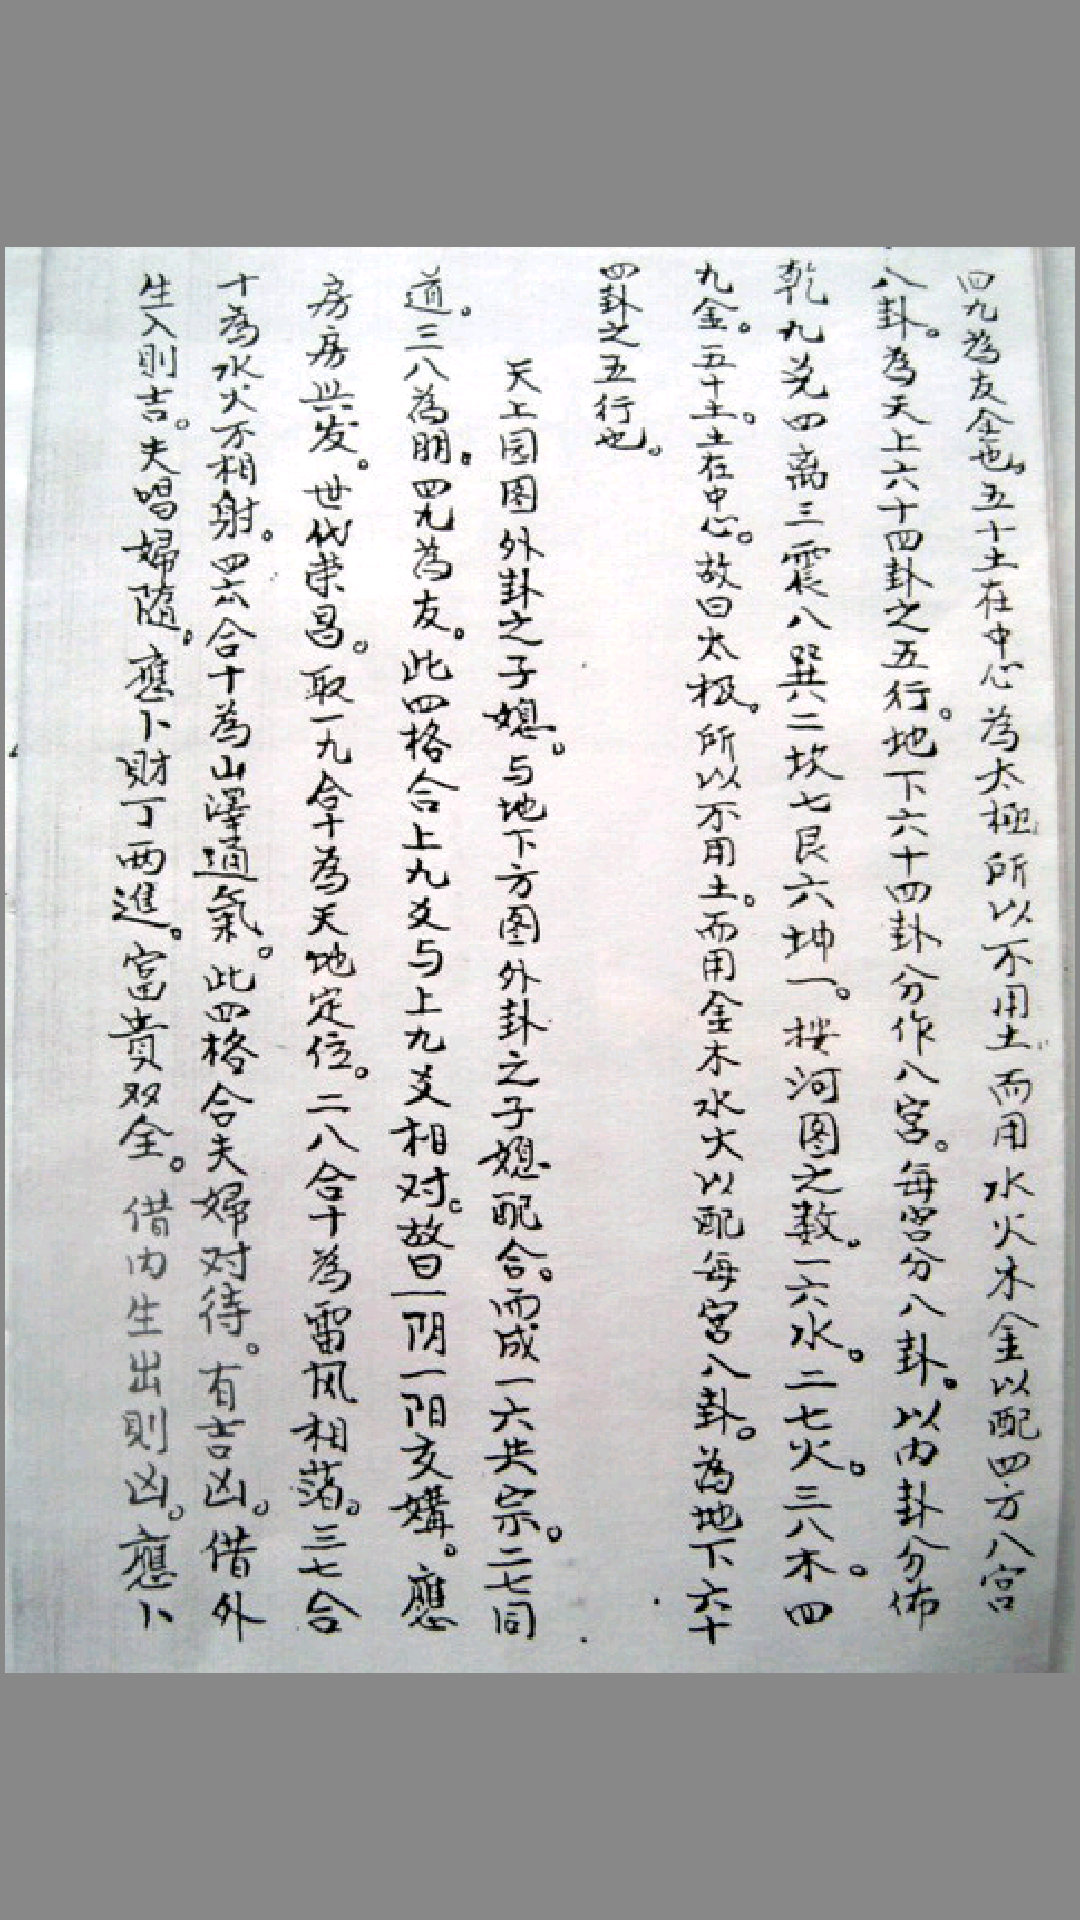 四九為友金也。五十土在中心為太極所以不用土而用水火木金以配四方八宮
八卦。為天上六十四卦之五行。地下六十四卦分作八宮。每宮分八卦。以内卦分佈
乾九兑四离三震八巽二坎七艮六坤一。按河图之数。一六水。二七火。三八木。四
九金。五十土。土在中心。故曰太极。所以不用土。而用金木水火以配每宮八卦。為地下六十
四卦之五行也。
天上园图外卦之子媳。与地下方图外卦之子媳配合。而成一六共宗。二七同
道。三八為朋。四九為友。此四格合上九爻与上九爻相对。故曰一阴一阳交媾。應
房房兴发。世代荣昌。取一九合十為天地定位。二八合十為雷风相荡。三七合
十為水火不相射。四六合十為山澤通氣。此四格合夫婦对待。有吉凶。借外
生入則吉。夫唱婦隨。應卜財丁两進。富貴双全。借内生出則凶。應卜